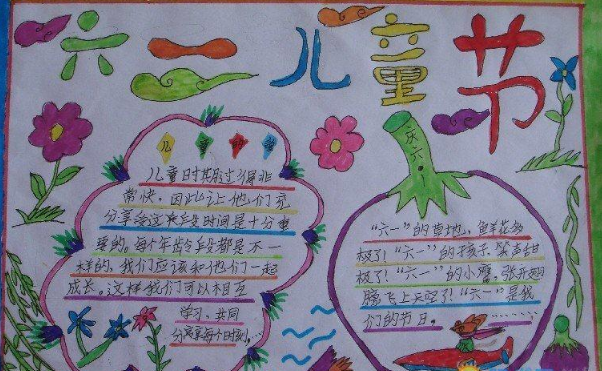 六一儿童节
儿童
儿童时期过得非
常快,因此让他们充
分享受这段时间是十分重
要的,每个年龄段都是不一
样的,我们应该和他们一起
成长,这样我们可以相互
学习,共同
分享每个时刻……
庆六一
"六一"的草地,鲜花多
极了!"六一"的孩子,笑声甜
极了!"六一"的小鹰,张开翅
膀飞上天空了!"六一"是我
们的节日。………